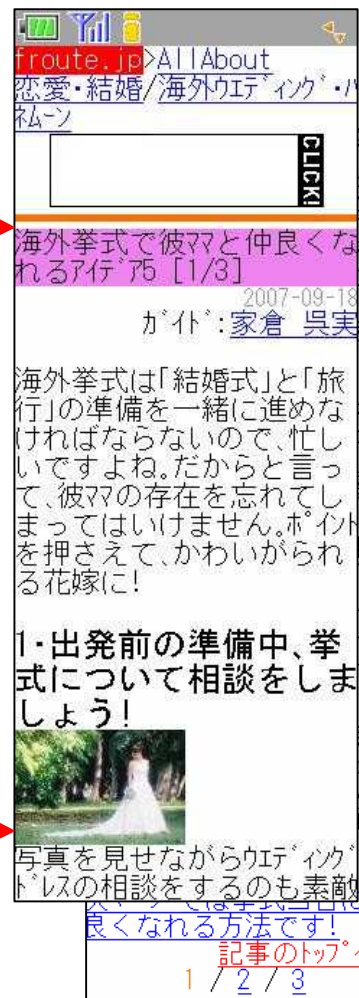 froute.jp>AllAbout
恋愛・結婚/海外ｳｴﾃﾞｨﾝｸﾞ・ﾊ
ﾈﾑｰﾝ
CLICK!
海外挙式で彼ﾏﾏと仲良くな
れるｱｲﾃﾞｱ5 [1/3]
2007-09-18
ｶﾞｲﾄﾞ:家倉 呉実
海外挙式は｢結婚式｣と｢旅
行｣の準備を一緒に進めな
ければならないので､忙し
いですよね｡だからと言っ
て､彼ﾏﾏの存在を忘れてし
まってはいけません｡ﾎﾟｲﾝﾄ
を押さえて､かわいがられ
る花嫁に!
1・出発前の準備中､挙
式について相談をしま
しょう!
写真を見せながらｳｴﾃﾞｨﾝｸﾞ
ﾄﾞﾚｽの相談をするのも素敵
良くなれる方法です!
記事のﾄｯﾌﾟ
1 / 2 / 3